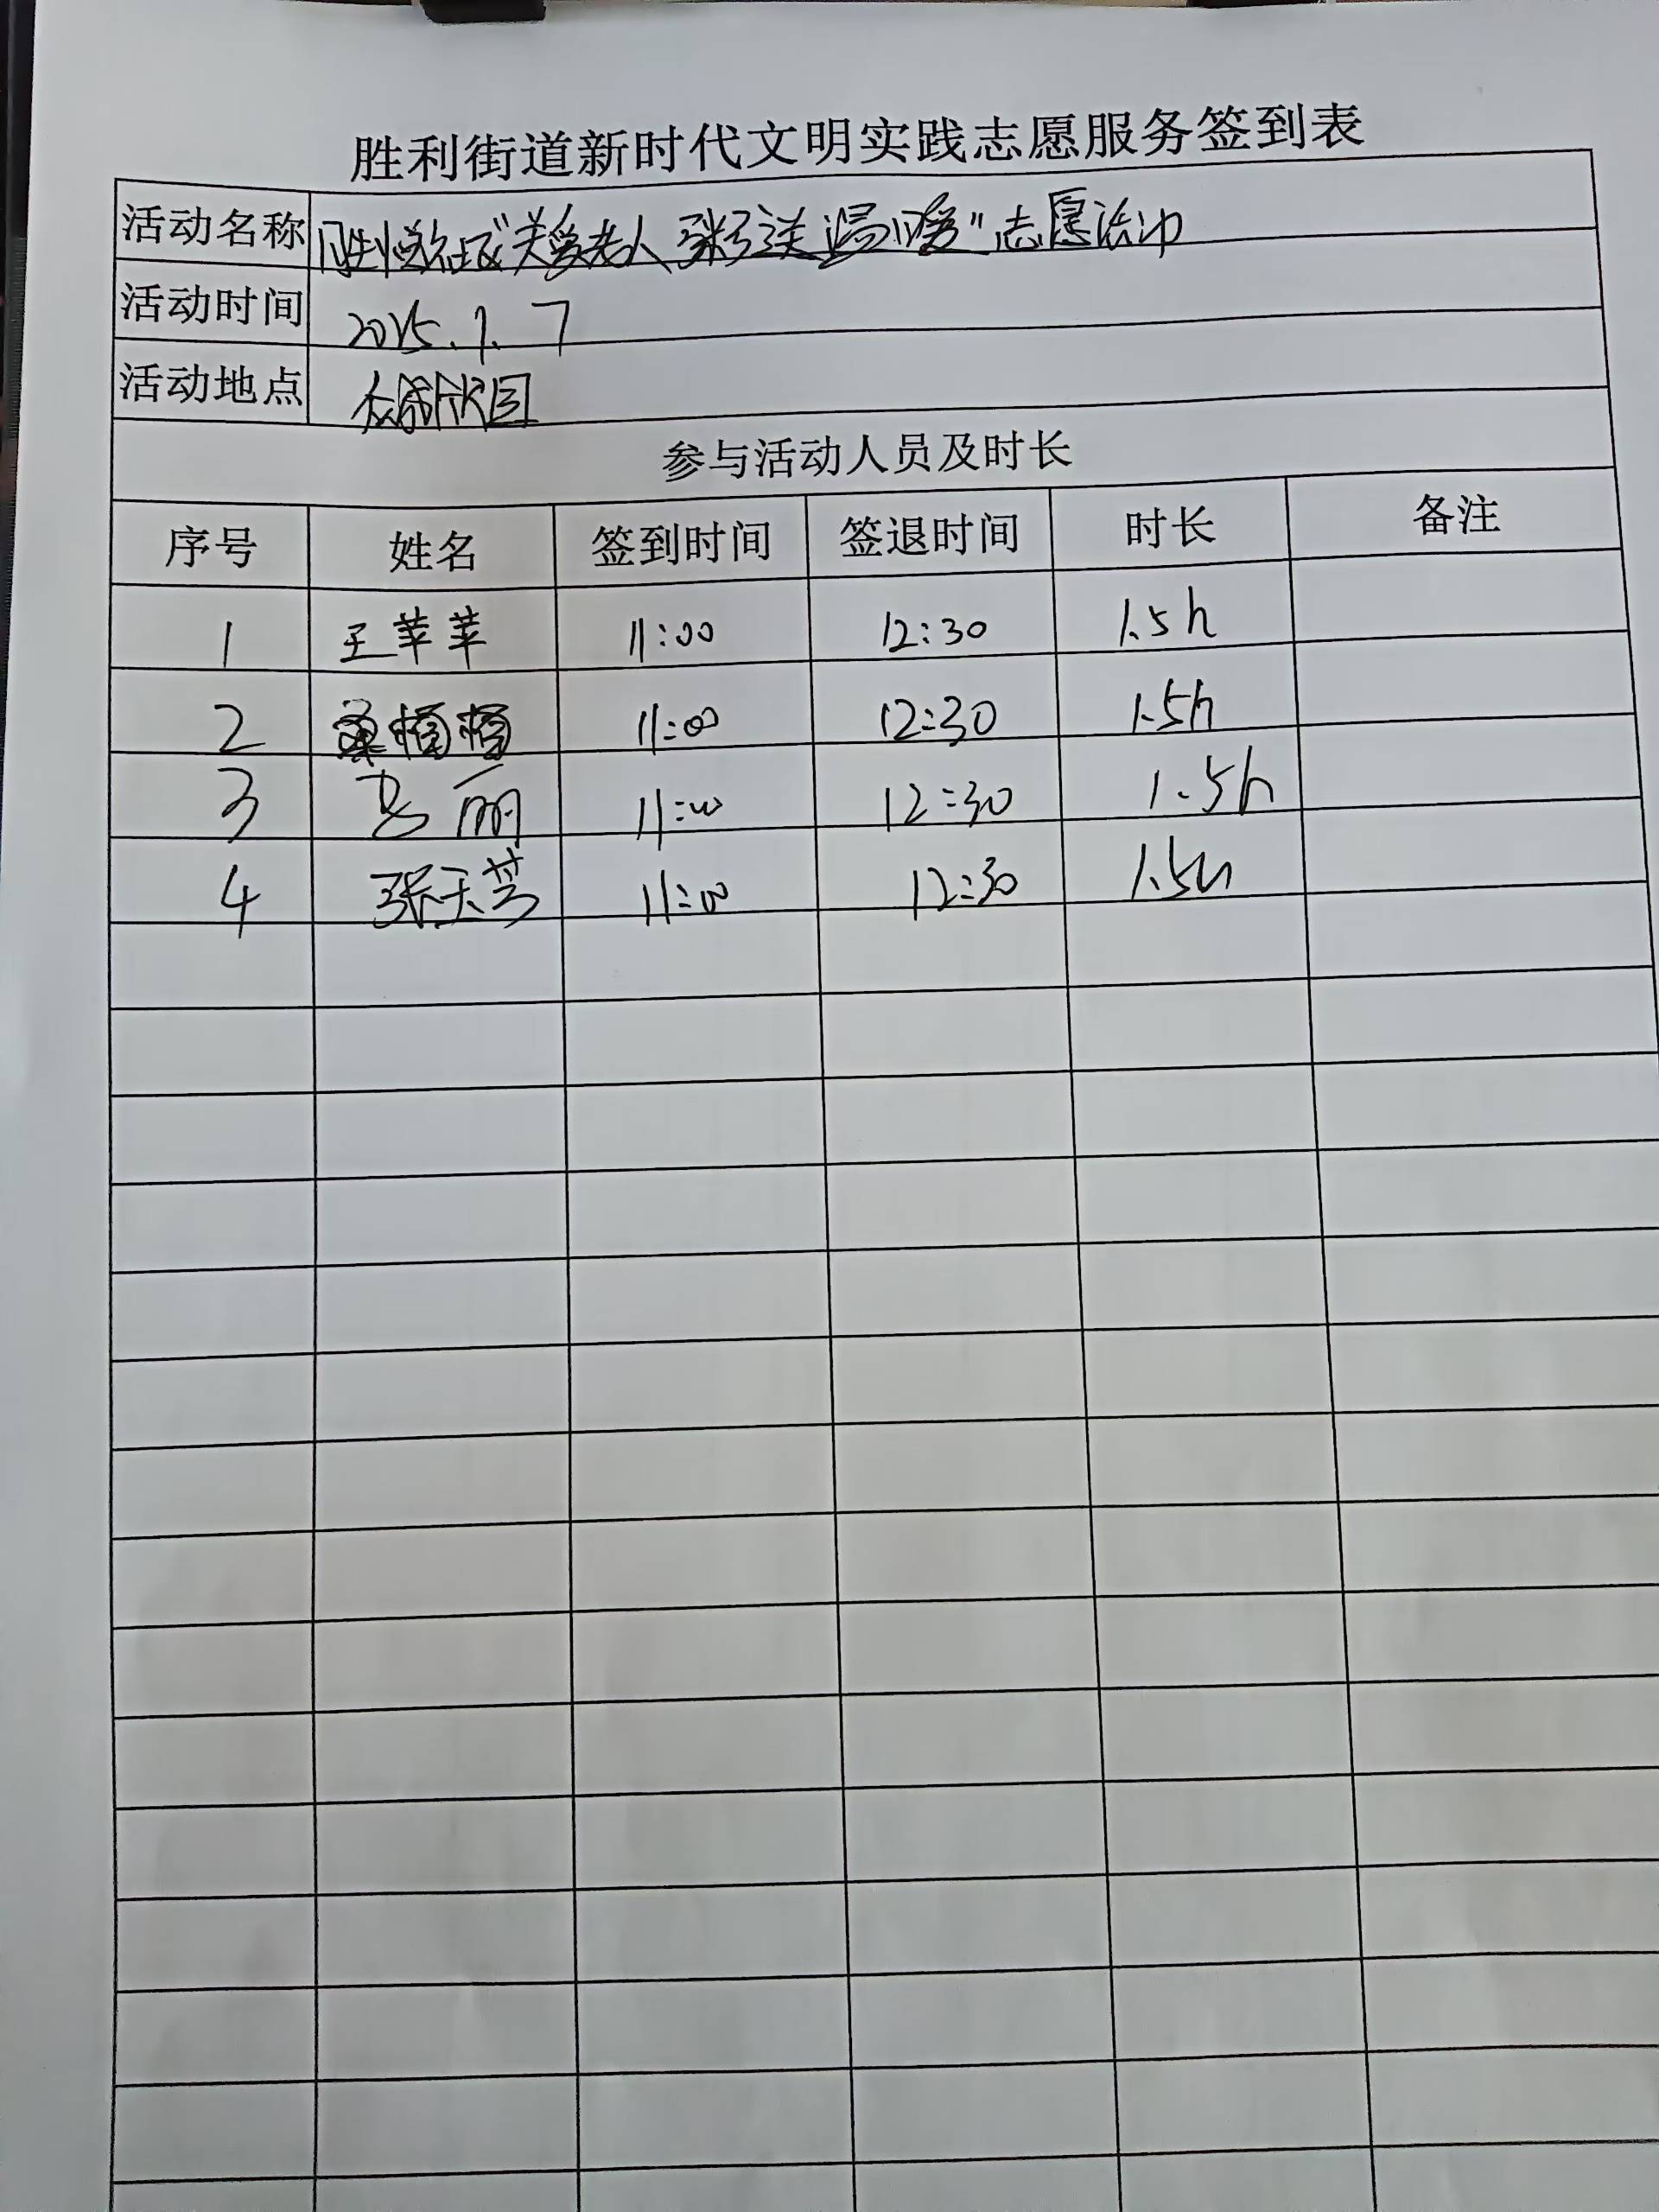 胜利街道新时代文明实践志愿服务签到表
活动名称 "关爱老人 粥送温暖"志愿活动
活动时间 2025.1.7
活动地点
参与活动人员及时长
序号 姓名 签到时间 签退时间 时长 备注
1 王苹苹 11:00 12:30 1.5h
2 11:00 12:30 1.5h
3 丽 11:00 12:30 1.5h
4 张天芳 11:00 12:30 1.5h